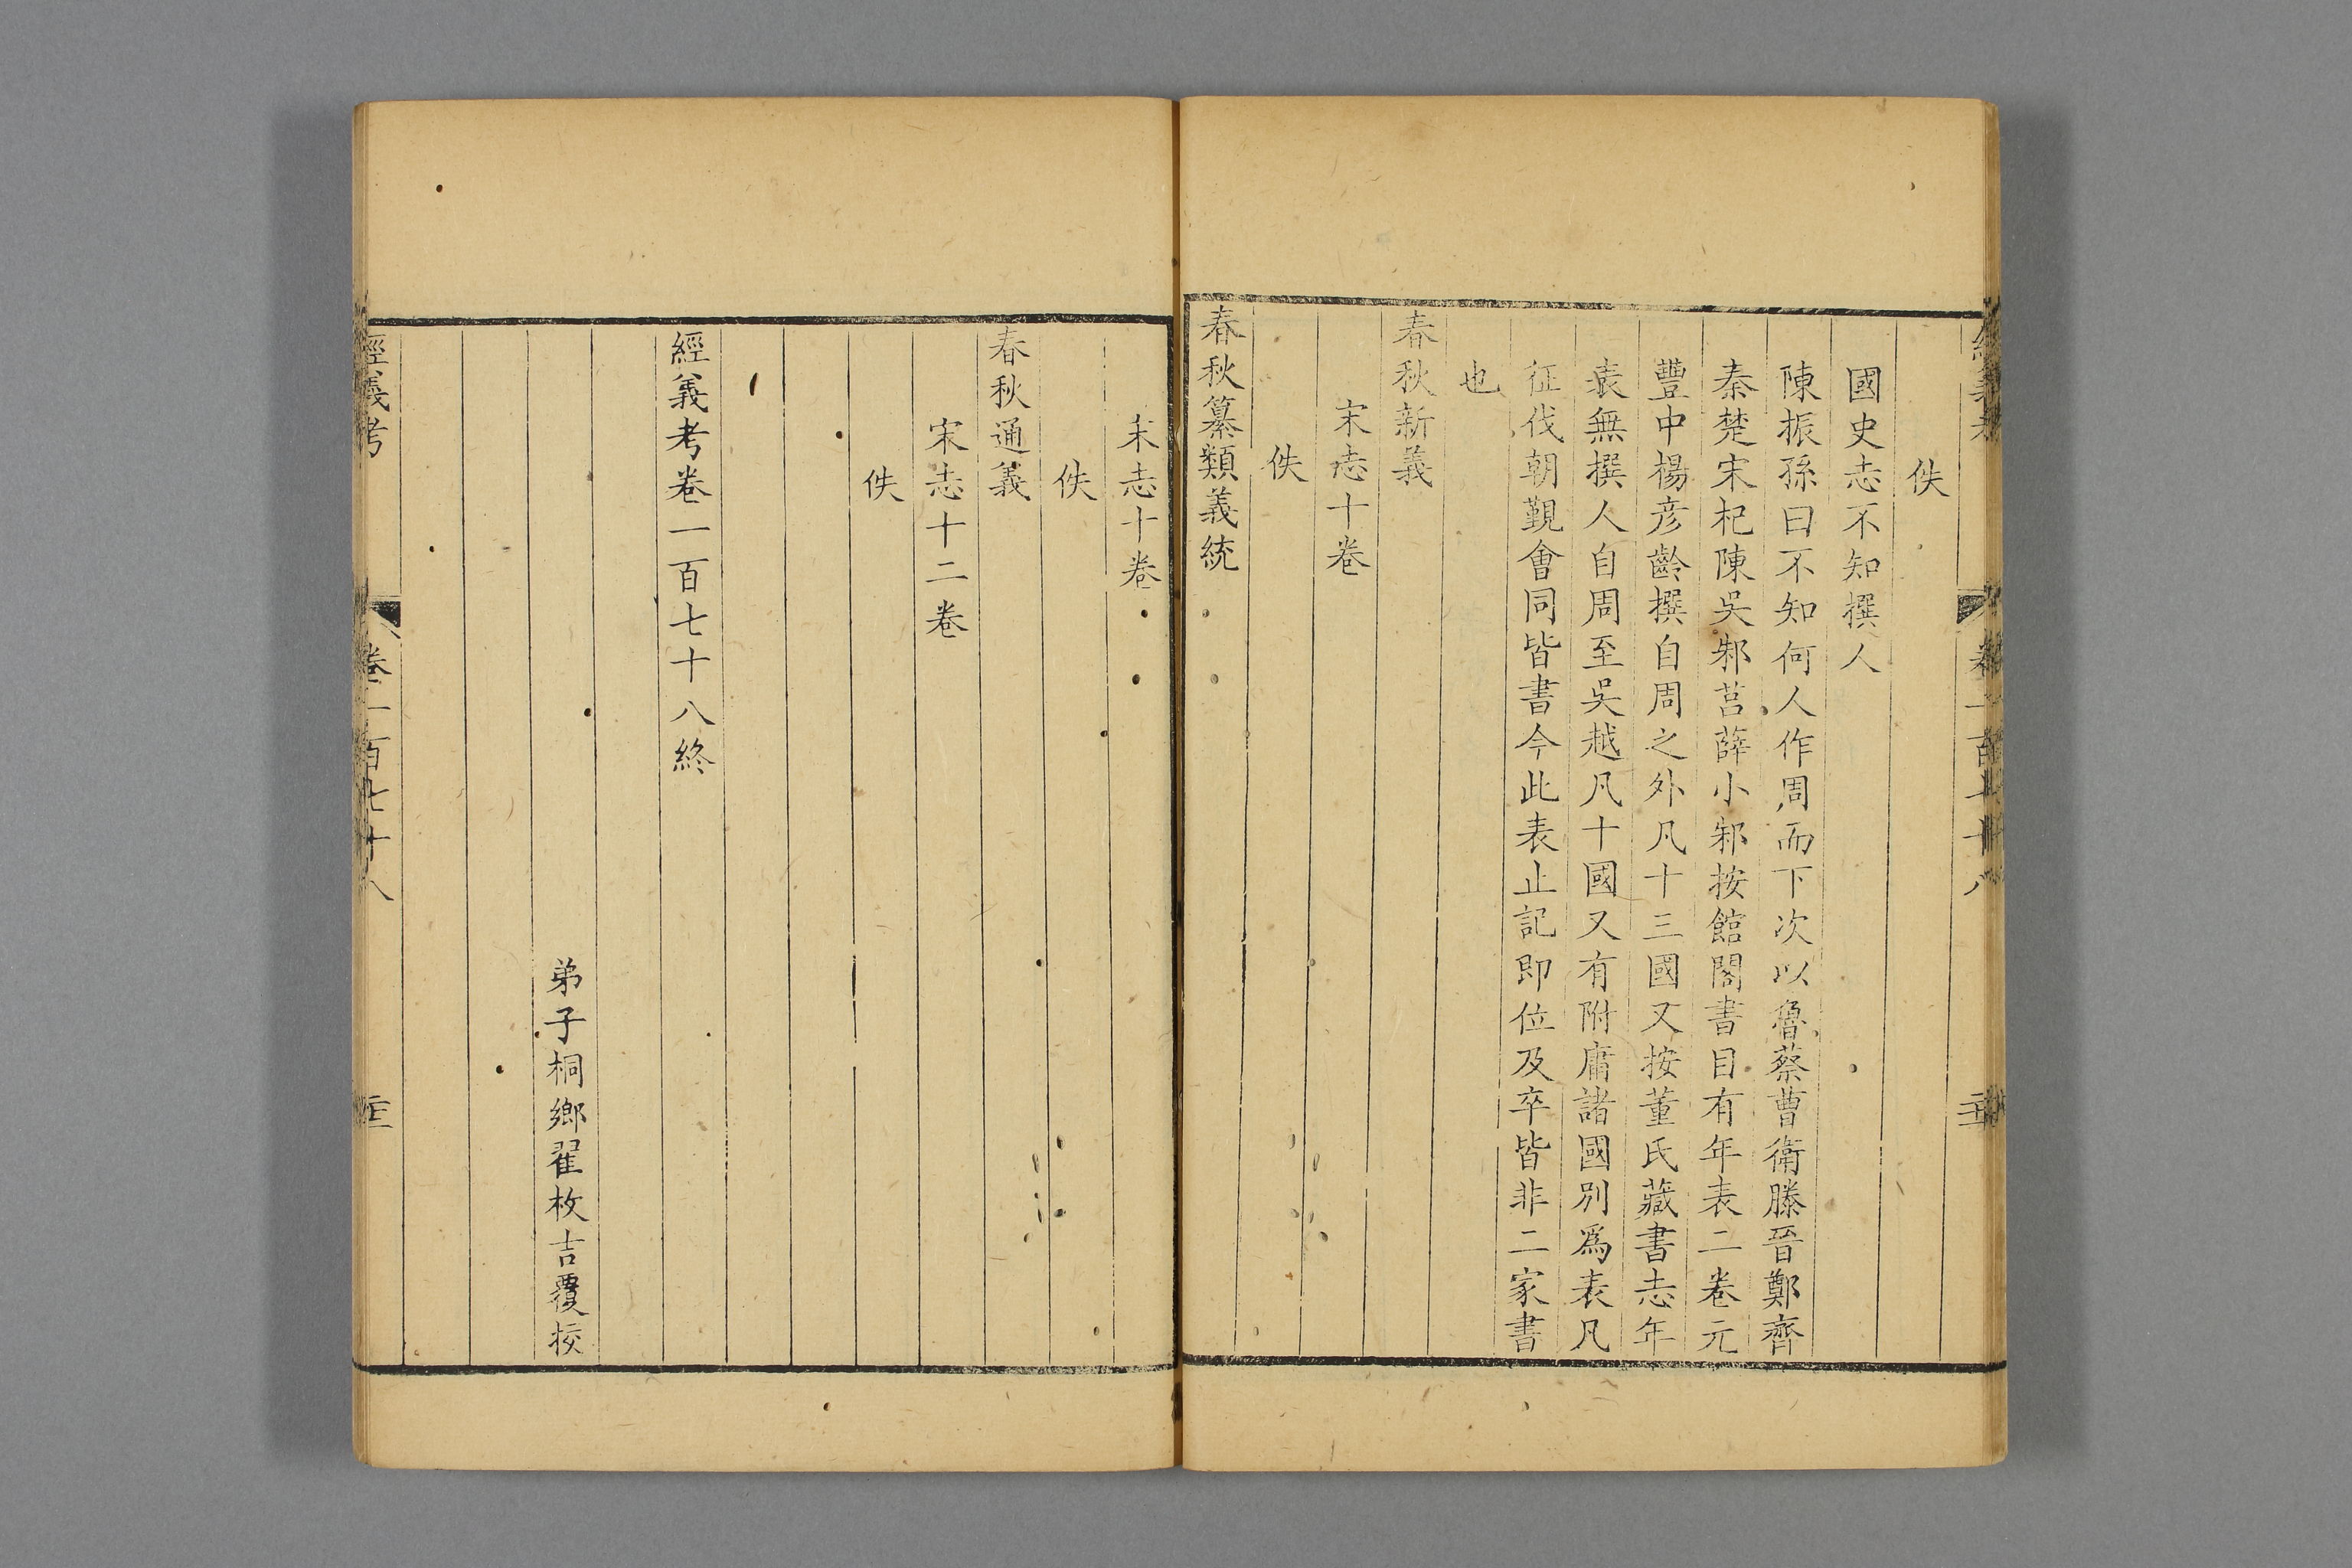 佚
國史志不知撰人
陳振孫曰不知何人作周而下次以魯蔡曹衛滕晉鄭齊
秦楚宋杞陳吳邾莒薛小邾按館閣書目有年表二卷元
豐中楊彦齡撰自周之外凡十三國又按董氏藏書志年
表無撰人自周至吳越凡十國又有附庸諸國別爲表凡
征伐朝覲會同皆書今此表止記即位及卒皆非二家書
也
春秋新義
宋志十卷
佚
春秋纂類義統
宋志十卷
佚
春秋通義
宋志十二卷
佚
經義考卷一百七十八終
弟子桐鄉翟枚吉覆挍
經義考
卷一百七十八